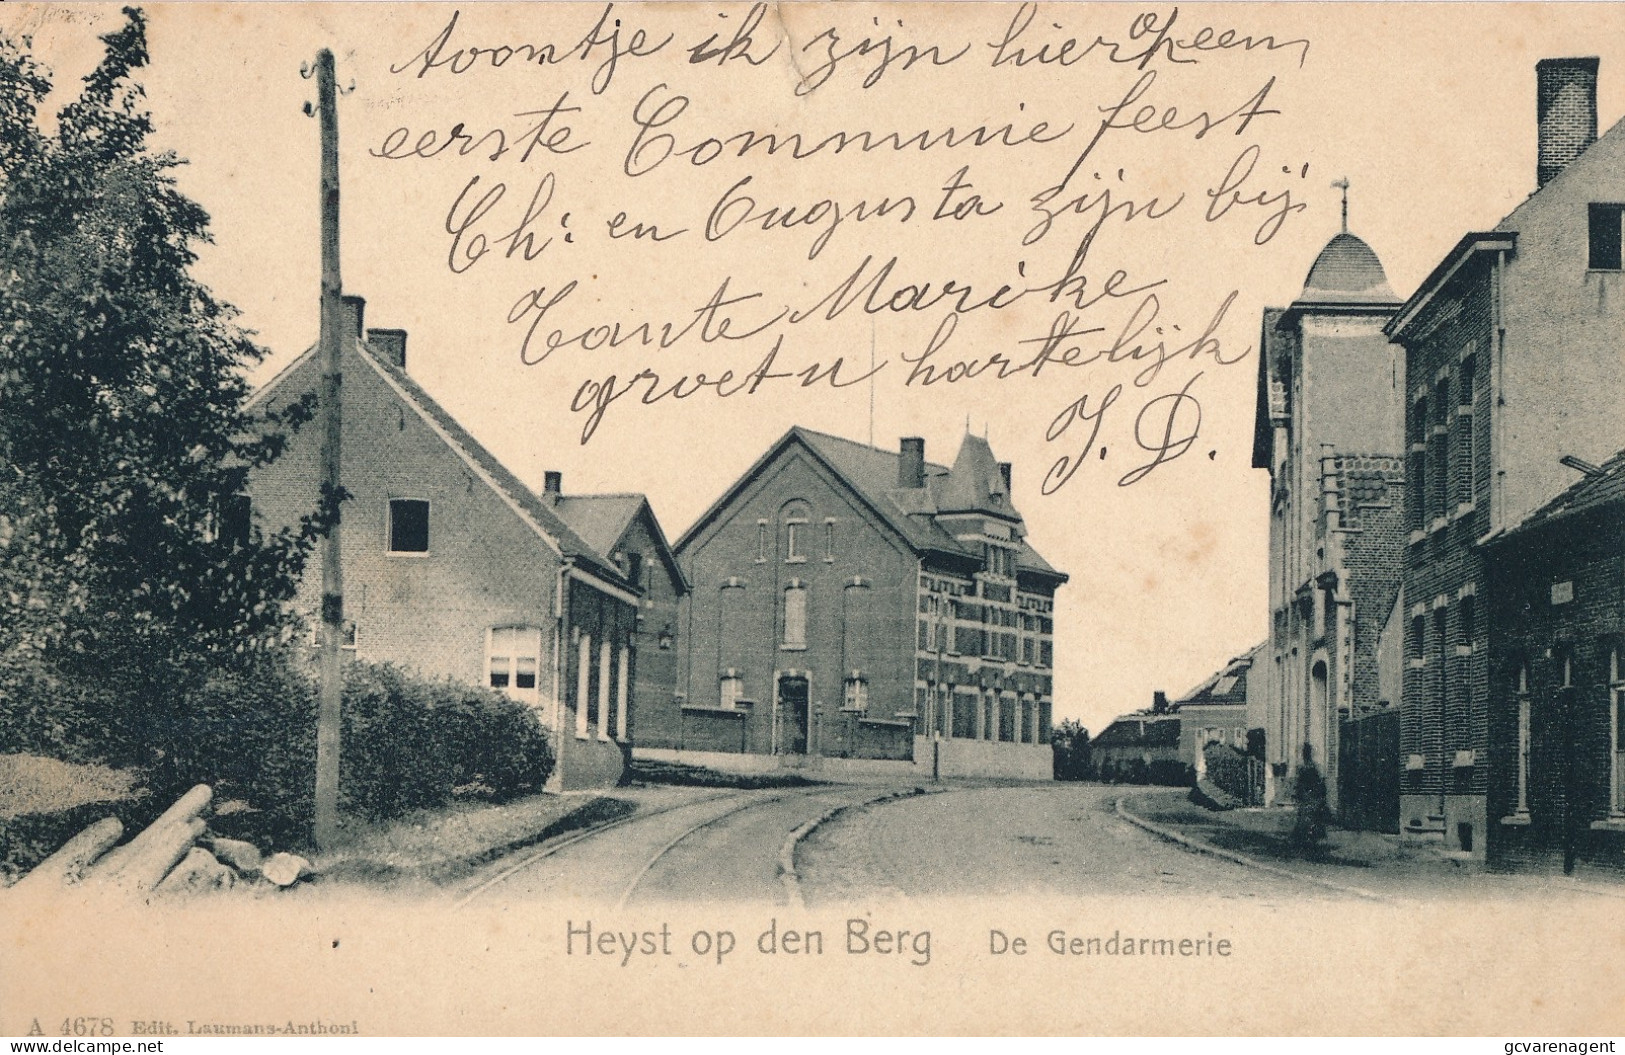 toontje ik zijn hier op een
eerste Communie feest
Ch: en Augusta zijn bij
Tante Marieke
groet u hartelijk
J. D.
Heyst op den Berg De Gendarmerie
A 4678 Edit. Laumans-Anthoni
https://www.delcampe.net
gcvarenagent